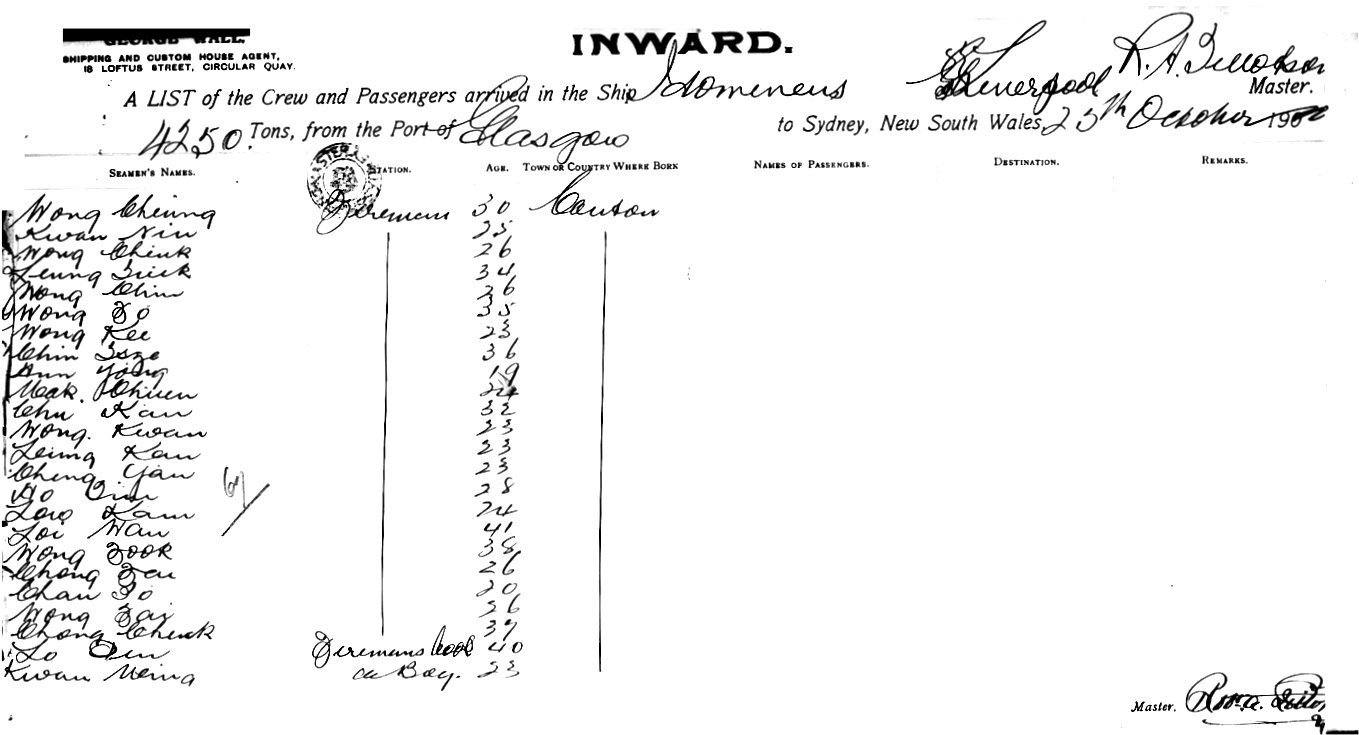 GEORGE WALL,
SHIPPING AND CUSTOM HOUSE AGENT,
18 LOFTUS STREET, CIRCULAR QUAY.
INWARD.
A LIST of the Crew and Passengers arrived in the Ship Idomeneus Liverpool R. A. Master.
4250 Tons, from the Port of Glasgow to Sydney, New South Wales, 25th October 190
SEAMEN'S NAMES. STATION. AGE. TOWN OR COUNTRY WHERE BORN NAMES OF PASSENGERS. DESTINATION. REMARKS.
Wong Cheung Fireman 30 Canton
Kwan Nin 25
Wong Cheuk 26
Leung 34
Wong Chin 36
Wong Fo 35
Wong Kee 23
Chin 36
Yong 19
Mak. Chuen 24
Chu Kan 32
Wong. Kwan 23
Leung Kan 23
Cheng Yau 23
Ho 28
Low Kam 24
Loi Wan 41
Wong Fook 38
Chong 26
Chan Fo 20
Wong 36
Chong Cheuk 37
Lo Firemans Cook 40
Kwan do Boy. 23
Master.